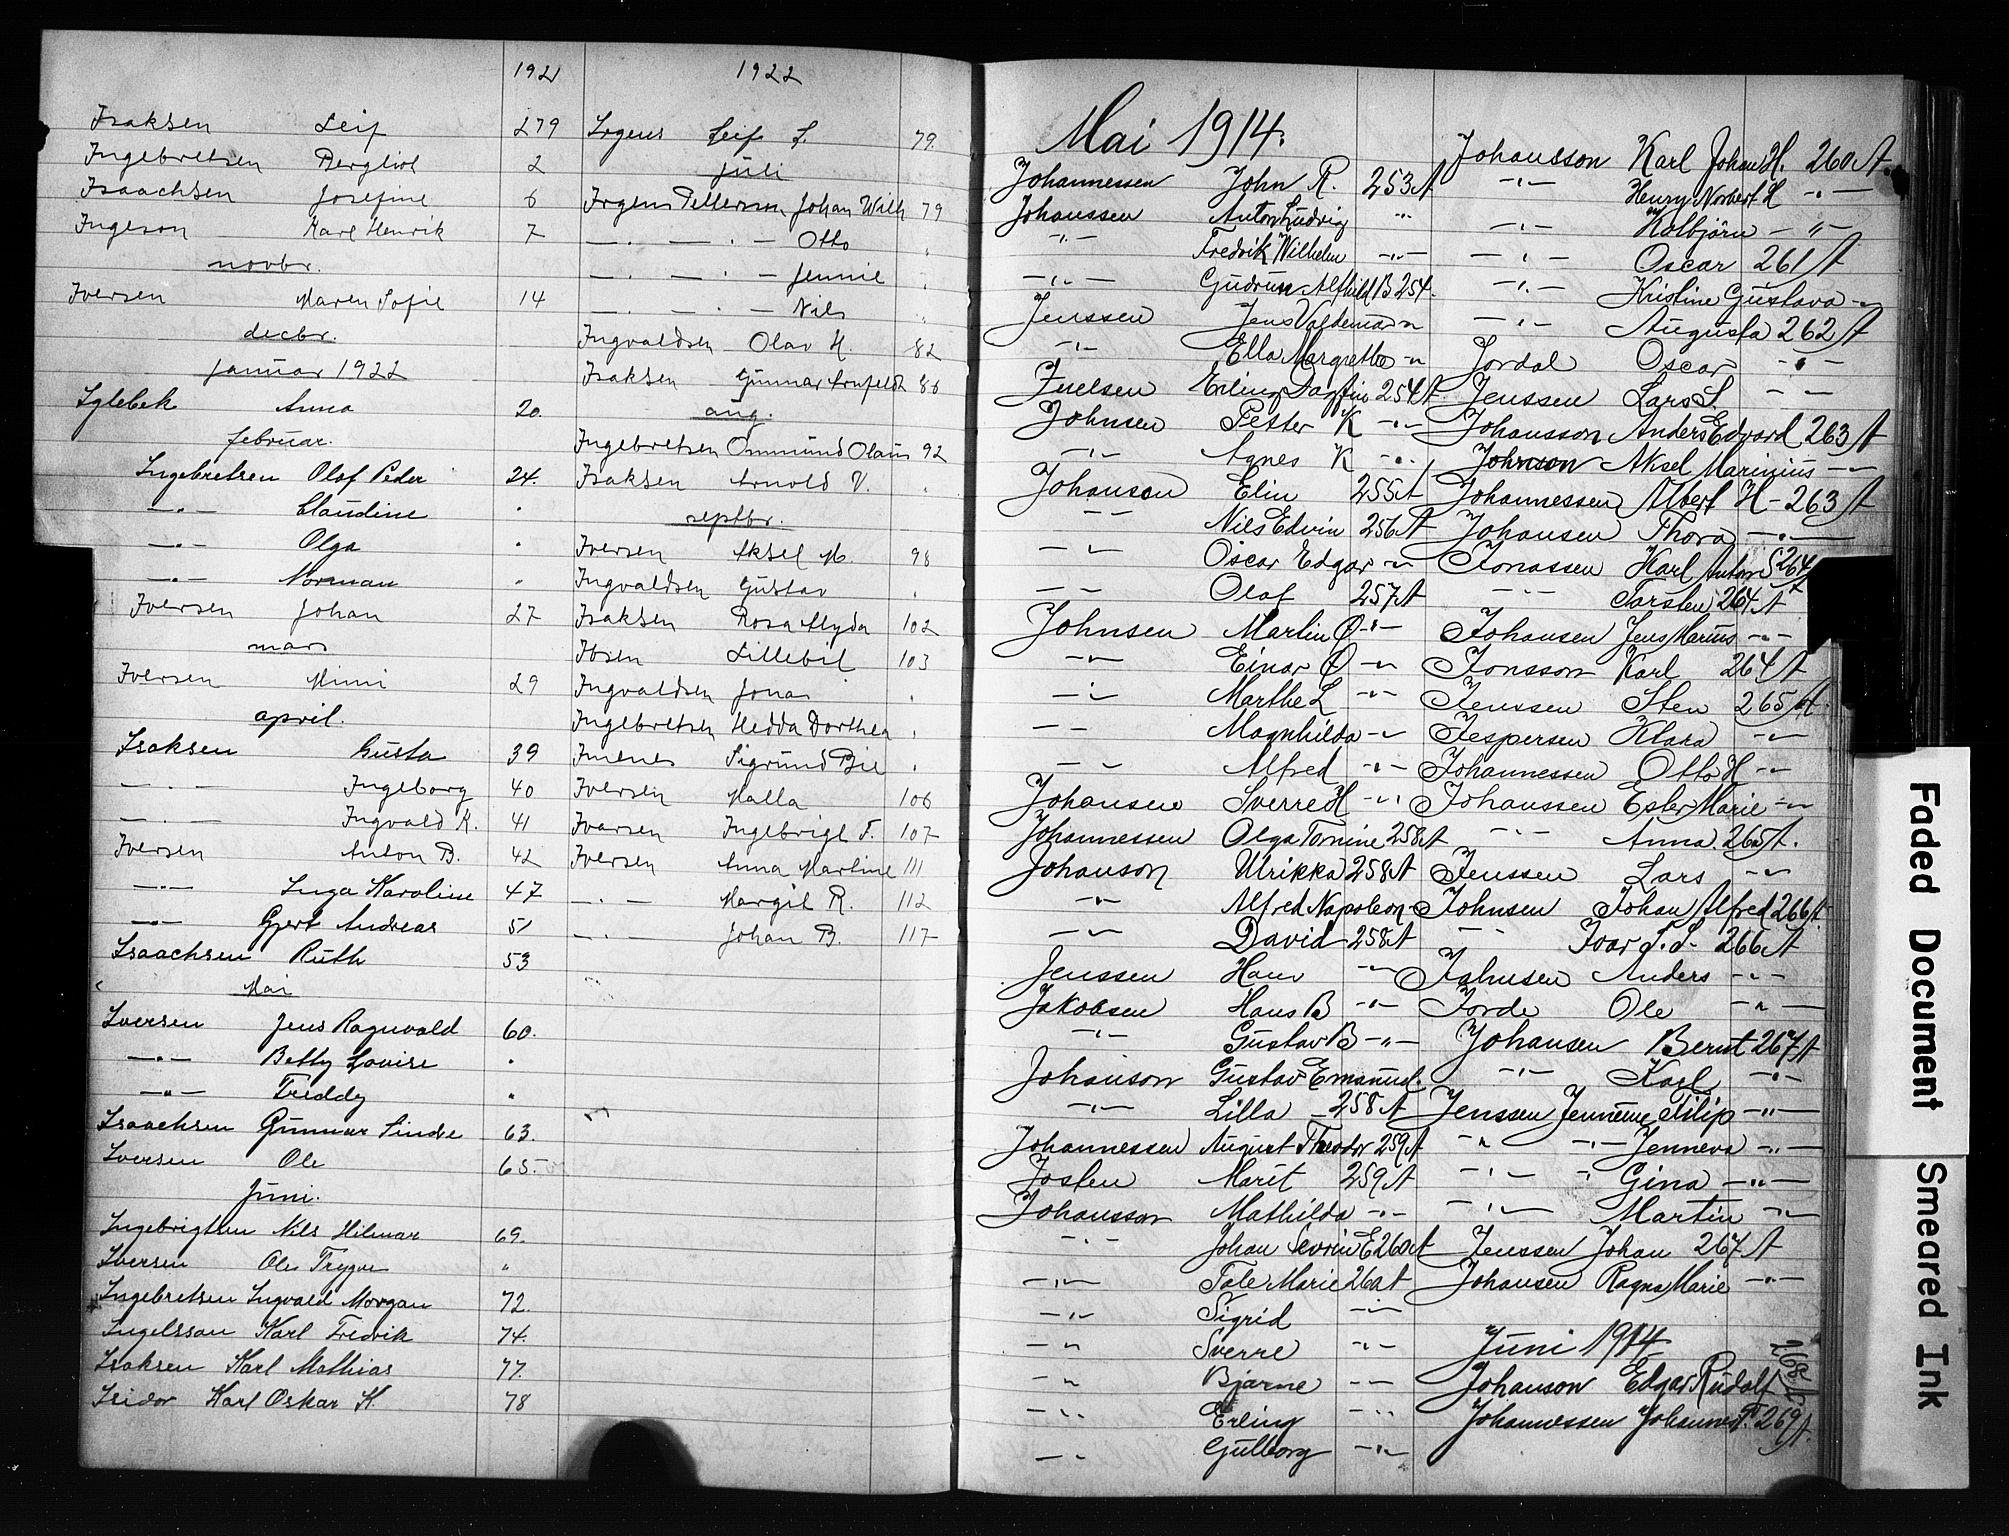 1921
Isaksen Leif 279
Ingebretsen Bergliot 2
Isaachsen Josefine 6
Ingeson Karl Henrik 7
novbr.
Iversen Maren Sofie 14
decbr.
januar 1922
Iglebek Anna 20
februar.
Ingebretsen Olaf Peder 24.
—"— Claudine "
—"— Olga "
—"— Norman "
Iversen Johan 27
mars
Iversen Mimi 29
april.
Isaksen Gusta 39
— " — Ingeborg 40
— " — Ingvald K. 41
Iversen Anton B. 42
—"— Inga Karoline 47
—"— Gjert Andreas 51
Isaachsen Ruth 53
Mai
Iversen Jens Ragnvald 60.
—"— Betty Lovise "
—"— Freddy "
Isaachsen Gunnar Sindre 63.
Iversen Ole 65.
Juni.
Ingebrigtsen Nils Hilmar 69.
Iversen Ole Trygve "
Ingebretsen Ingvald Morgan 72.
Ingelsson Karl Fredrik 74.
Isaksen Karl Mathias 77.
Isidor Karl Oskar K. 78
1922
Irgens Leif S. 79.
juli
Irgens Pettersen, Johan Wilh 79
— . — . — Otto "
— . — . — Jennie "
— . — . — Nils "
Ingvaldsen Olav H. 82
Isaksen Gunnar Arnfeldt 86
aug.
Ingebretsen Ommund Olaus 92
Isaksen Arnold V. "
septbr.
Iversen Aksel M. 98
Ingvaldsen Gustav "
Isaksen Rosa Alyda 102
Ibsen Lillebil 103
Ingvaldsen Jonas "
Ingebretsen Hedda Dorthea "
Imenes Sigrund Bie "
Iversen Malla 106
Ivarsen Ingebrigt F. 107
Iversen Anna Martine 111
— . — Margit R. 112
— . — Johan B. 117
Mai 1914.
Johannessen John R. 253 A
Johanssen Anton Ludvig "
—"— Fredrik Wilhelm —"—
—"— Gudrun Alfhild B 254.
Jenssen Jens Valdemar —"—
—"— Ella Margrethe —"—
Juelsen Erling Dagfin 254 A
Johnsen Petter K —"—
—"— Agnes K —"—
Johansen Elin 255 A
—"— Nils Edvin 256 A
—"— Oscar Edgar —"—
—"— Olaf 257 A
Johnsen Martin Ø —"—
—"— Einar Ø —"—
—"— Marthe L —"—
—"— Magnhilda —"—
—"— Alfred —"—
Johansen Sverre H —"—
Johannessen Olga Tomine 258 A
Johanson Ulrikka 258 A
—"— Alfred Napoleon —"—
—"— David 258 A
Jenssen Hans —"—
Jakobsen Hans B —"—
—"— Gustav B —"—
Johanson Gustav Emanuel.
—"— Lilla 258 A
Johannessen August Theodor 259 A
Josten Marit 259 A
Johansson Mathilda —"—
—"— Johan Severin E 260 A
—"— Tale Marie 260 A
—"— Sigrid —"—
—"— Sverre —"—
—"— Bjarne —"—
—"— Erling —"—
—"— Gulborg —"—
Johansson Karl Johan H. 260 A.
—"— Henry Norbert H —"—
—"— Kolbjörn —"—
—"— Oscar 261 A
—"— Kristine Gustava —"—
—"— Augusta 262 A
Jordal Oscar —"—
Jenssen Lars S. —"—
Johansson Anders Edvard 263 A
Johnson Aksel Marinius —"—
Johannessen Albert H — 263 A
Johansen Thora —"—
Jonassen Karl Anton S 264
—"— Torsten 264 A
Johansen Jens Marius —"—
Jonsson Karl 264 A
Jenssen Sten 265 A.
Jespersen Klara —"—
Johannessen Otto H —"—
Johanssen Ester Marie —"—
—"— Anna 265 A.
Jenssen Lars —"—
Johnsen Johan Alfred 266 A
—"— Ivar S. S. 266 A
Johnsen Anders —"—
Jorde Ole —"—
Johansen Bernt 267 A
—"— Karl —"—
Jenssen Jenneve Filip —"—
—"— —"— Jenneva —"—
—"— —"— Gina —"—
—"— Martin —"—
Jenssen Johan 267 A
Johansen Ragna Marie —"—
Juni 1914
Johanson Edgar Rudolf 268 A
Johannessen Johannes F. 269 A.
Faded Document
Smeared Ink